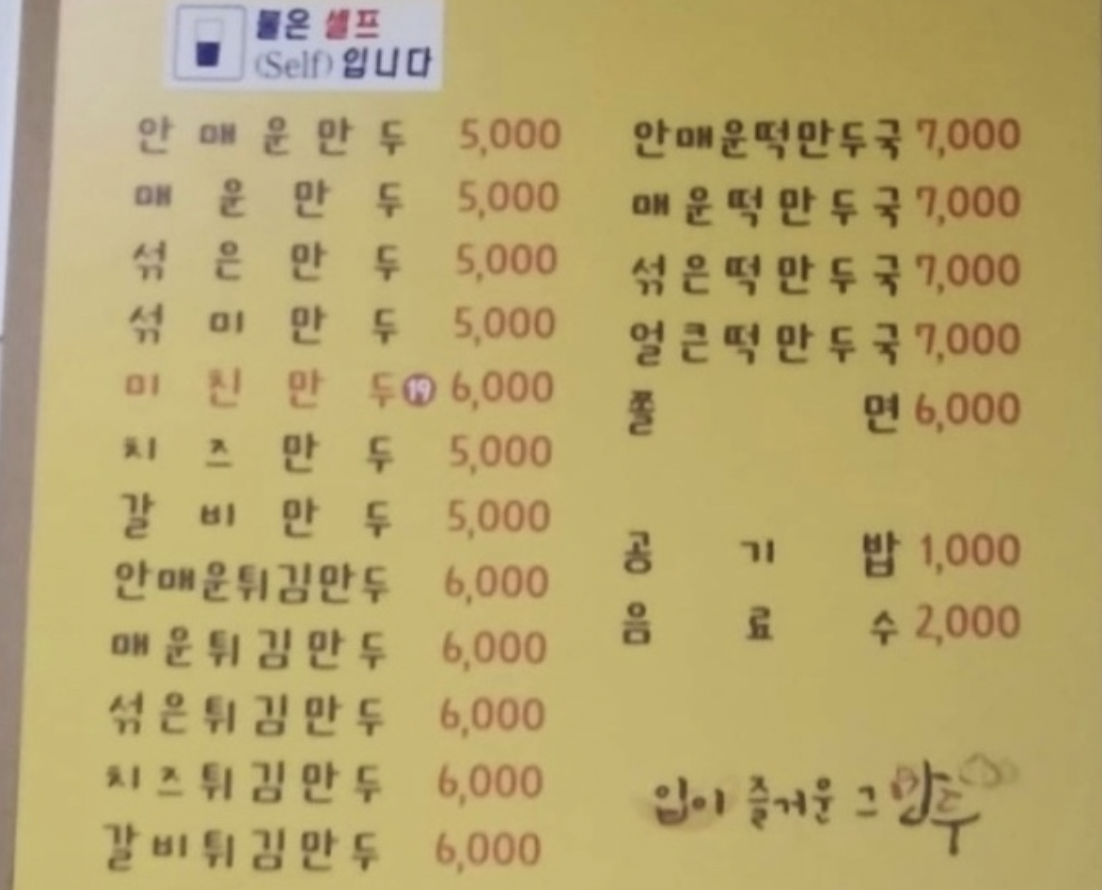 물은 셀프
(Self) 입니다
안매운만두 5,000
매운만두 5,000
섞은만두 5,000
섞미만두 5,000
미친만두 19 6,000
치즈만두 5,000
갈비만두 5,000
안매운튀김만두 6,000
매운튀김만두 6,000
섞은튀김만두 6,000
치즈튀김만두 6,000
갈비튀김만두 6,000
안매운떡만두국 7,000
매운떡만두국 7,000
섞은떡만두국 7,000
얼큰떡만두국 7,000
쫄면 6,000
공기밥 1,000
음료수 2,000
입이 즐거운 그 만두